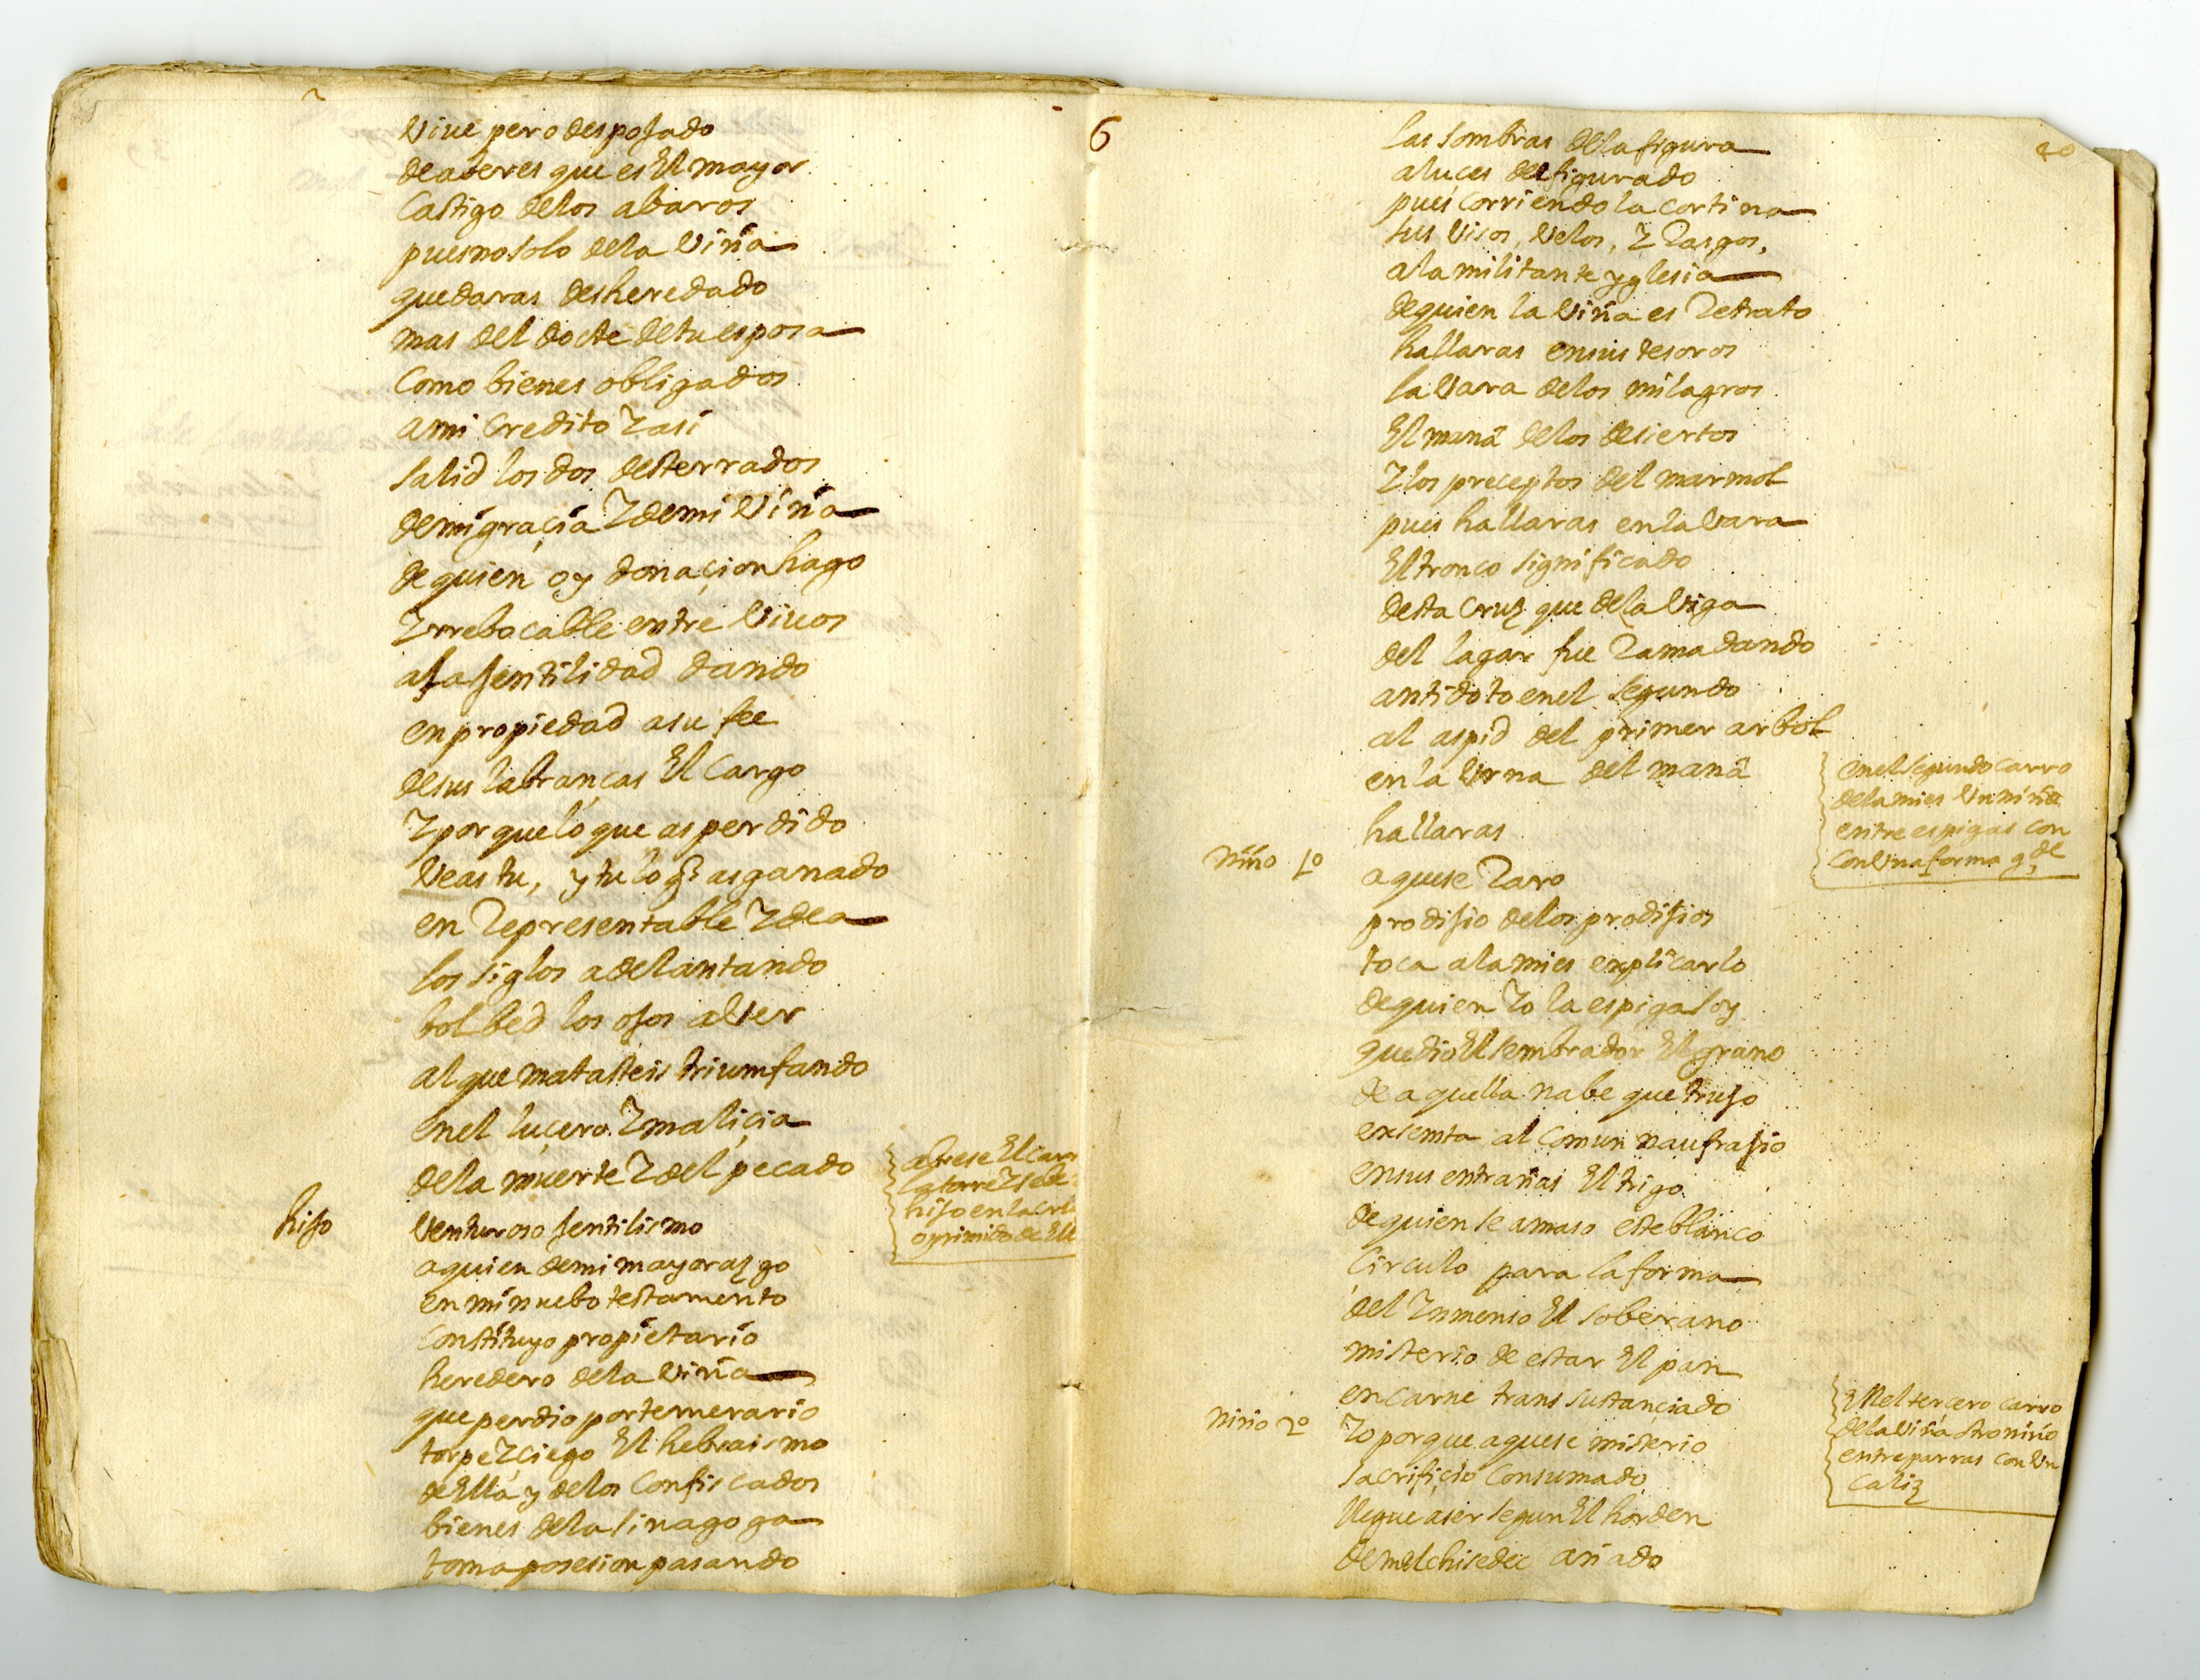 Viue pero desposado
de aberes que es El mayor
Castigo delos abaros
pues no solo dela Viña
quedaras desheredado
mas del docte de tu esposa
Como bienes obligados
a mi Credito Y asi
salid los dos desterrados
de mi graçia Y de mi Viña
de quien oy donaçion hago
Yrrebocable entre Viuos
a la jentilidad dando
en propiedad a su fee
de sus labranças El Cargo
Y por que lo que as perdido
Veas tu, y tu lo q̃ as ganado
en Representable Ydea
los siglos adelantando
bolbed los ojos a Ver
al que matasteis triumfando
Enel luçero Y maliçia
dela muerte Y del pecado
abrese El Carr
la torre Y sebe
hijo en la cru
oprimido de El
hijo
Venturoso jentilismo
a quien de mi mayorazgo
en mi nuebo testamento
Constituyo propietario
heredero dela Viña
que perdio por temerario
torpe Y çiego El hebraismo
de Ella y delos Confiscados
bienes dela sinagoga
toma posesion pasando
6
40
las sombras dela figura
a luçes del figurado
pues Corriendo la Cortina
sus Visos, Velos, Y Rasgos,
a la militante yglesia
de quien la Viña es Retrato
hallaras en sus tesoros
la Vara delos milagros
El manâ delos desiertos
Y los preceptos del marmol
pues hallaras en la Vara
El tronco significado
desta Cruz que dela Viga
del lagar fue Rama dando
antidoto en el segundo
al aspid del primer arbol
en la Vrna del manâ
hallaras
enel segundo carro
dela mies Vn niño
entre espigas con
con Vna forma g.de
Niño 1º
aquese Raro
prodijio delos prodijios
toca a la mies explicarlo
de quien Yo la espiga soy
que dio El sembrador El grano
de aquella nabe que trujo
exsemta al Comun naufrajio
en sus entrañas El trigo
de quien se amaso este blanco
Circulo para la forma
del Ynmenso El soberano
misterio de estar El pan
en carne transsustançiado
Niño 2º
Yo por que aquese misterio
sacrifiçio Consumado
llegue a ser segun El horden
de melchisedec añado
Enel terçero carro
dela Viña otro niño
entre parras con Vn
Caliz